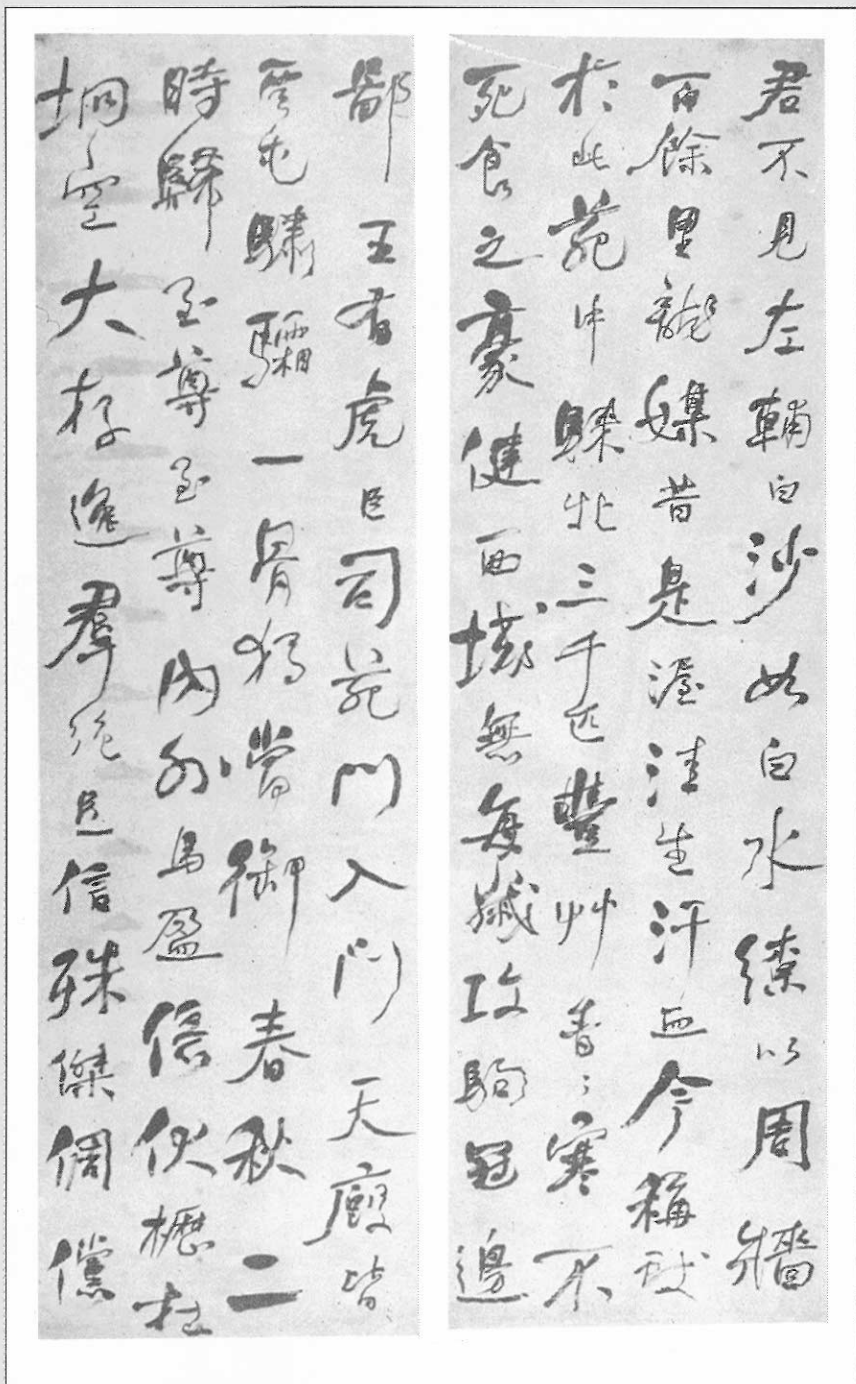 君不見左輔白沙如白水繚以周牆
百餘里龍媒昔是渥洼生汗血今稱獻
於此苑中騋牝三千匹豐艸青〻寒不
死食之豪健西域無每歲攻駒冠邊
鄙王有虎臣司苑門入門天廄皆
雲屯驌驦一骨獨當御春秋二
時歸至尊至尊內外馬盈億伏櫪在
坰空大存逸羣絕足信殊傑倜儻